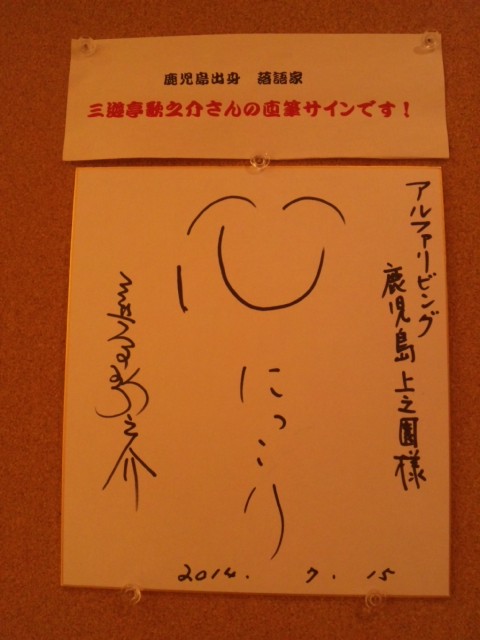 鹿児島出身 落語家
三遊亭歌之介さんの直筆サインです！
アルファリビング
鹿児島上之園様
心
にっこり
之介
2014. 7. 15